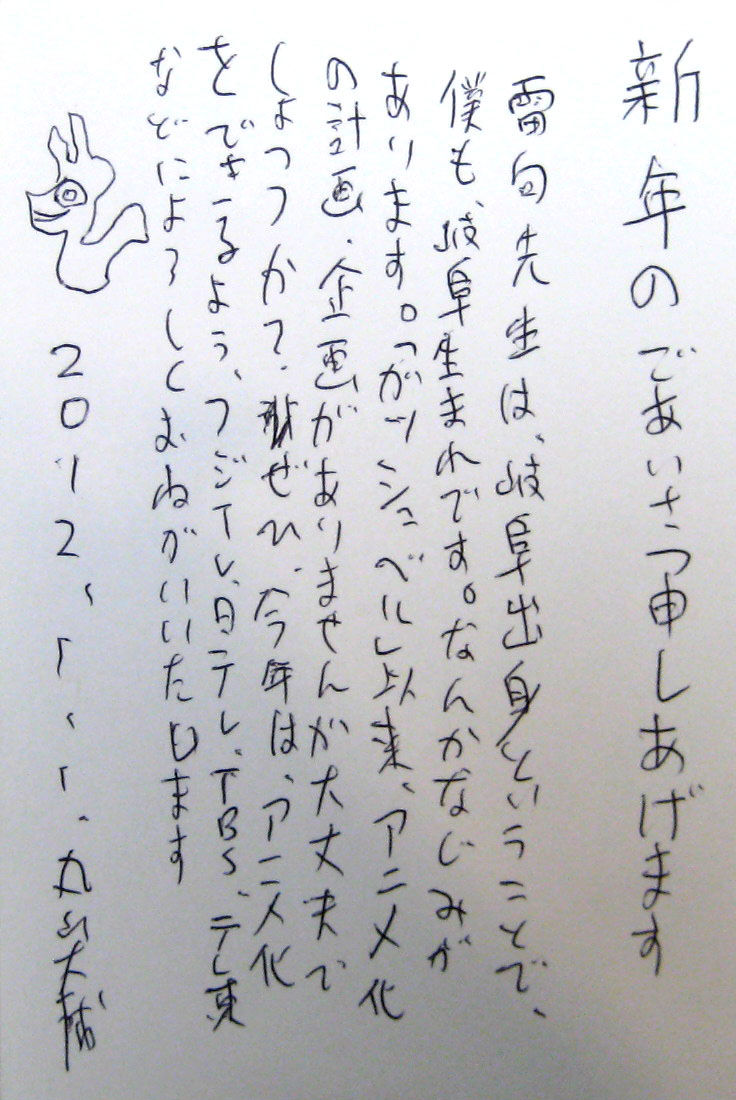 新年のごあいさつ申しあげます
雷句先生は、岐阜出身ということで、
僕も、岐阜生まれです。なんかなじみが
あります。「ガッシュベル」以来、アニメ化
の計画、企画がありませんが大丈夫で
しょうか?、ぜひ、今年は、アニメ化
をできるよう、フジテレ、日テレ、TBS、テレ東
などによろしくおねがいいたします
2012、1、1、丸山大輔